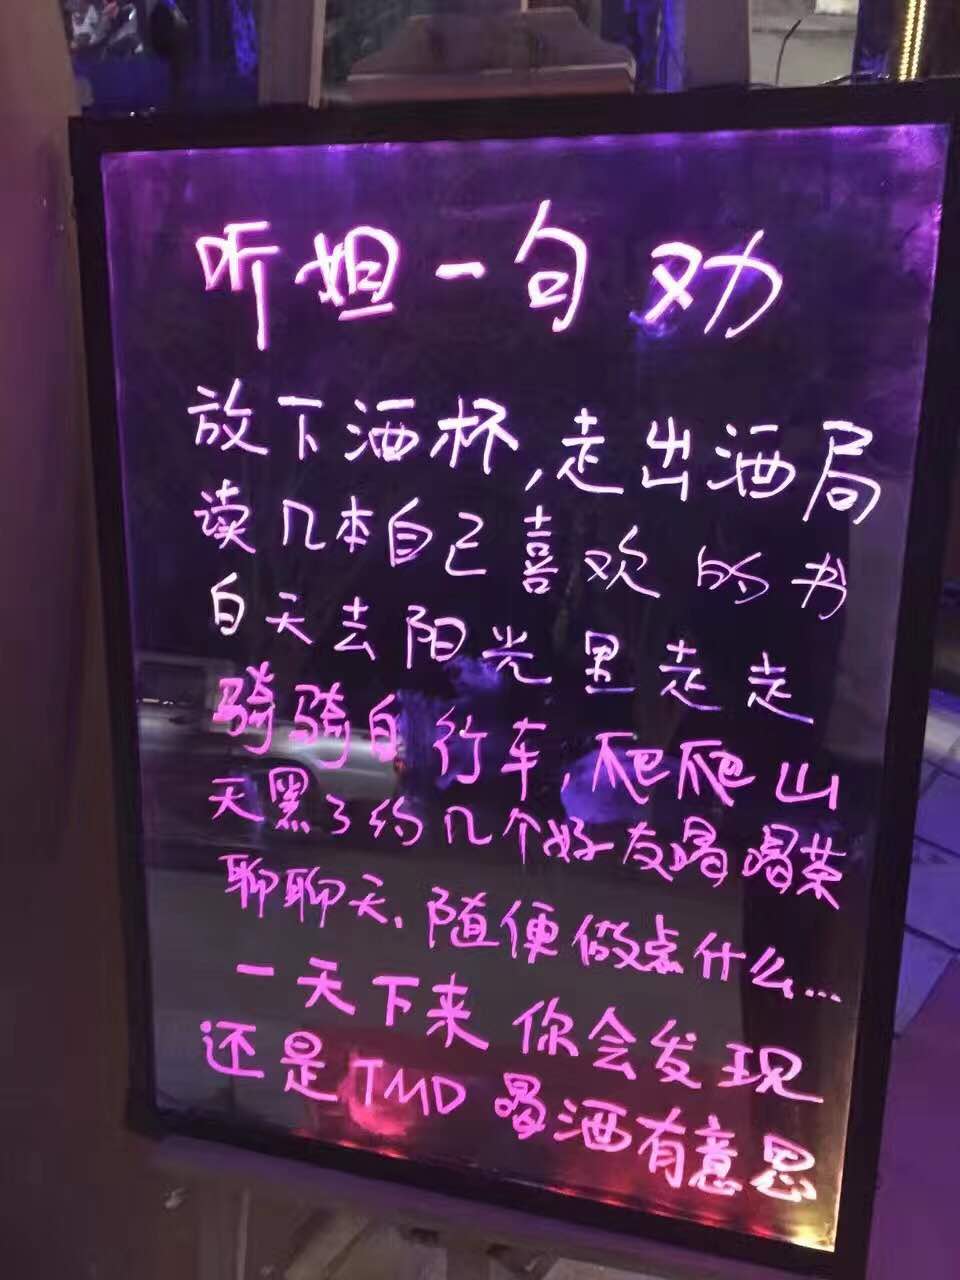 听姐一句劝
放下酒杯,走出酒局
读几本自己喜欢的书
白天去阳光里走走
骑骑自行车,爬爬山
天黑了约几个好友喝喝茶
聊聊天、随便做点什么...
一天下来 你会发现
还是TMD 喝酒有意思